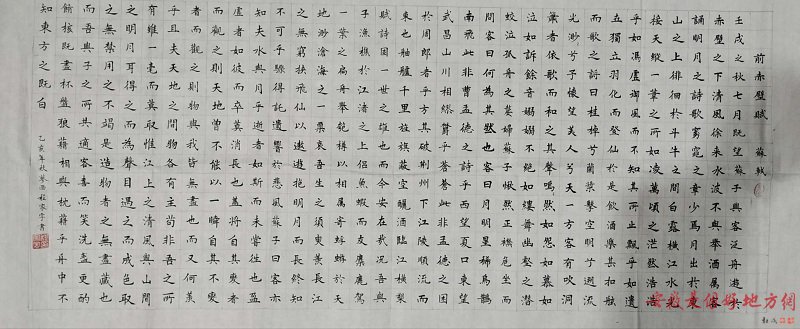 前赤壁賦 蘇軾
壬戌之秋七月既望蘇子與客泛舟遊於
赤壁之下清風徐來水波不興舉酒屬客
誦明月之詩歌窈窕之章少焉月出於東
山之上徘徊於斗牛之間白露橫江水光
接天縱一葦之所如凌萬頃之茫然浩浩
乎如馮虛御風而不知其所止飄飄乎如遺
世獨立羽化而登仙於是飲酒樂甚扣舷
而歌之歌曰桂棹兮蘭槳擊空明兮溯流
光渺渺兮予懷望美人兮天一方客有吹洞
簫者倚歌而和之其聲嗚嗚然如怨如慕如
泣如訴餘音嫋嫋不絕如縷舞幽壑之潛
蛟泣孤舟之嫠婦蘇子愀然正襟危坐而
問客曰何為其然也客曰月明星稀烏鵲
南飛此非曹孟德之詩乎西望夏口東望
武昌山川相繆鬱乎蒼蒼此非孟德之困
於周郎者乎方其破荊州下江陵順流而
東也舳艫千里旌旗蔽空釃酒臨江橫槊
賦詩固一世之雄也而今安在哉況吾與
子漁樵於江渚之上侶魚蝦而友麋鹿駕
一葉之扁舟舉匏樽以相屬寄蜉蝣於天
地渺滄海之一粟哀吾生之須臾羨長江
之無窮挾飛仙以遨遊抱明月而長終知
不可乎驟得託遺響於悲風蘇子曰客亦
知夫水與月乎逝者如斯而未嘗往也盈
虛者如彼而卒莫消長也蓋將自其變者
而觀之則天地曾不能以一瞬自其不變
者而觀之則物與我皆無盡也而又何羨
乎且夫天地之間物各有主苟非吾之所
有雖一毫而莫取惟江上之清風與山間
之明月耳得之而為聲目遇之而成色取
之無禁用之不竭是造物者之無盡藏也
而吾與子之所共適客喜而笑洗盞更酌
餚核既盡杯盤狼藉相與枕藉乎舟中不
知東方之既白
乙亥年秋